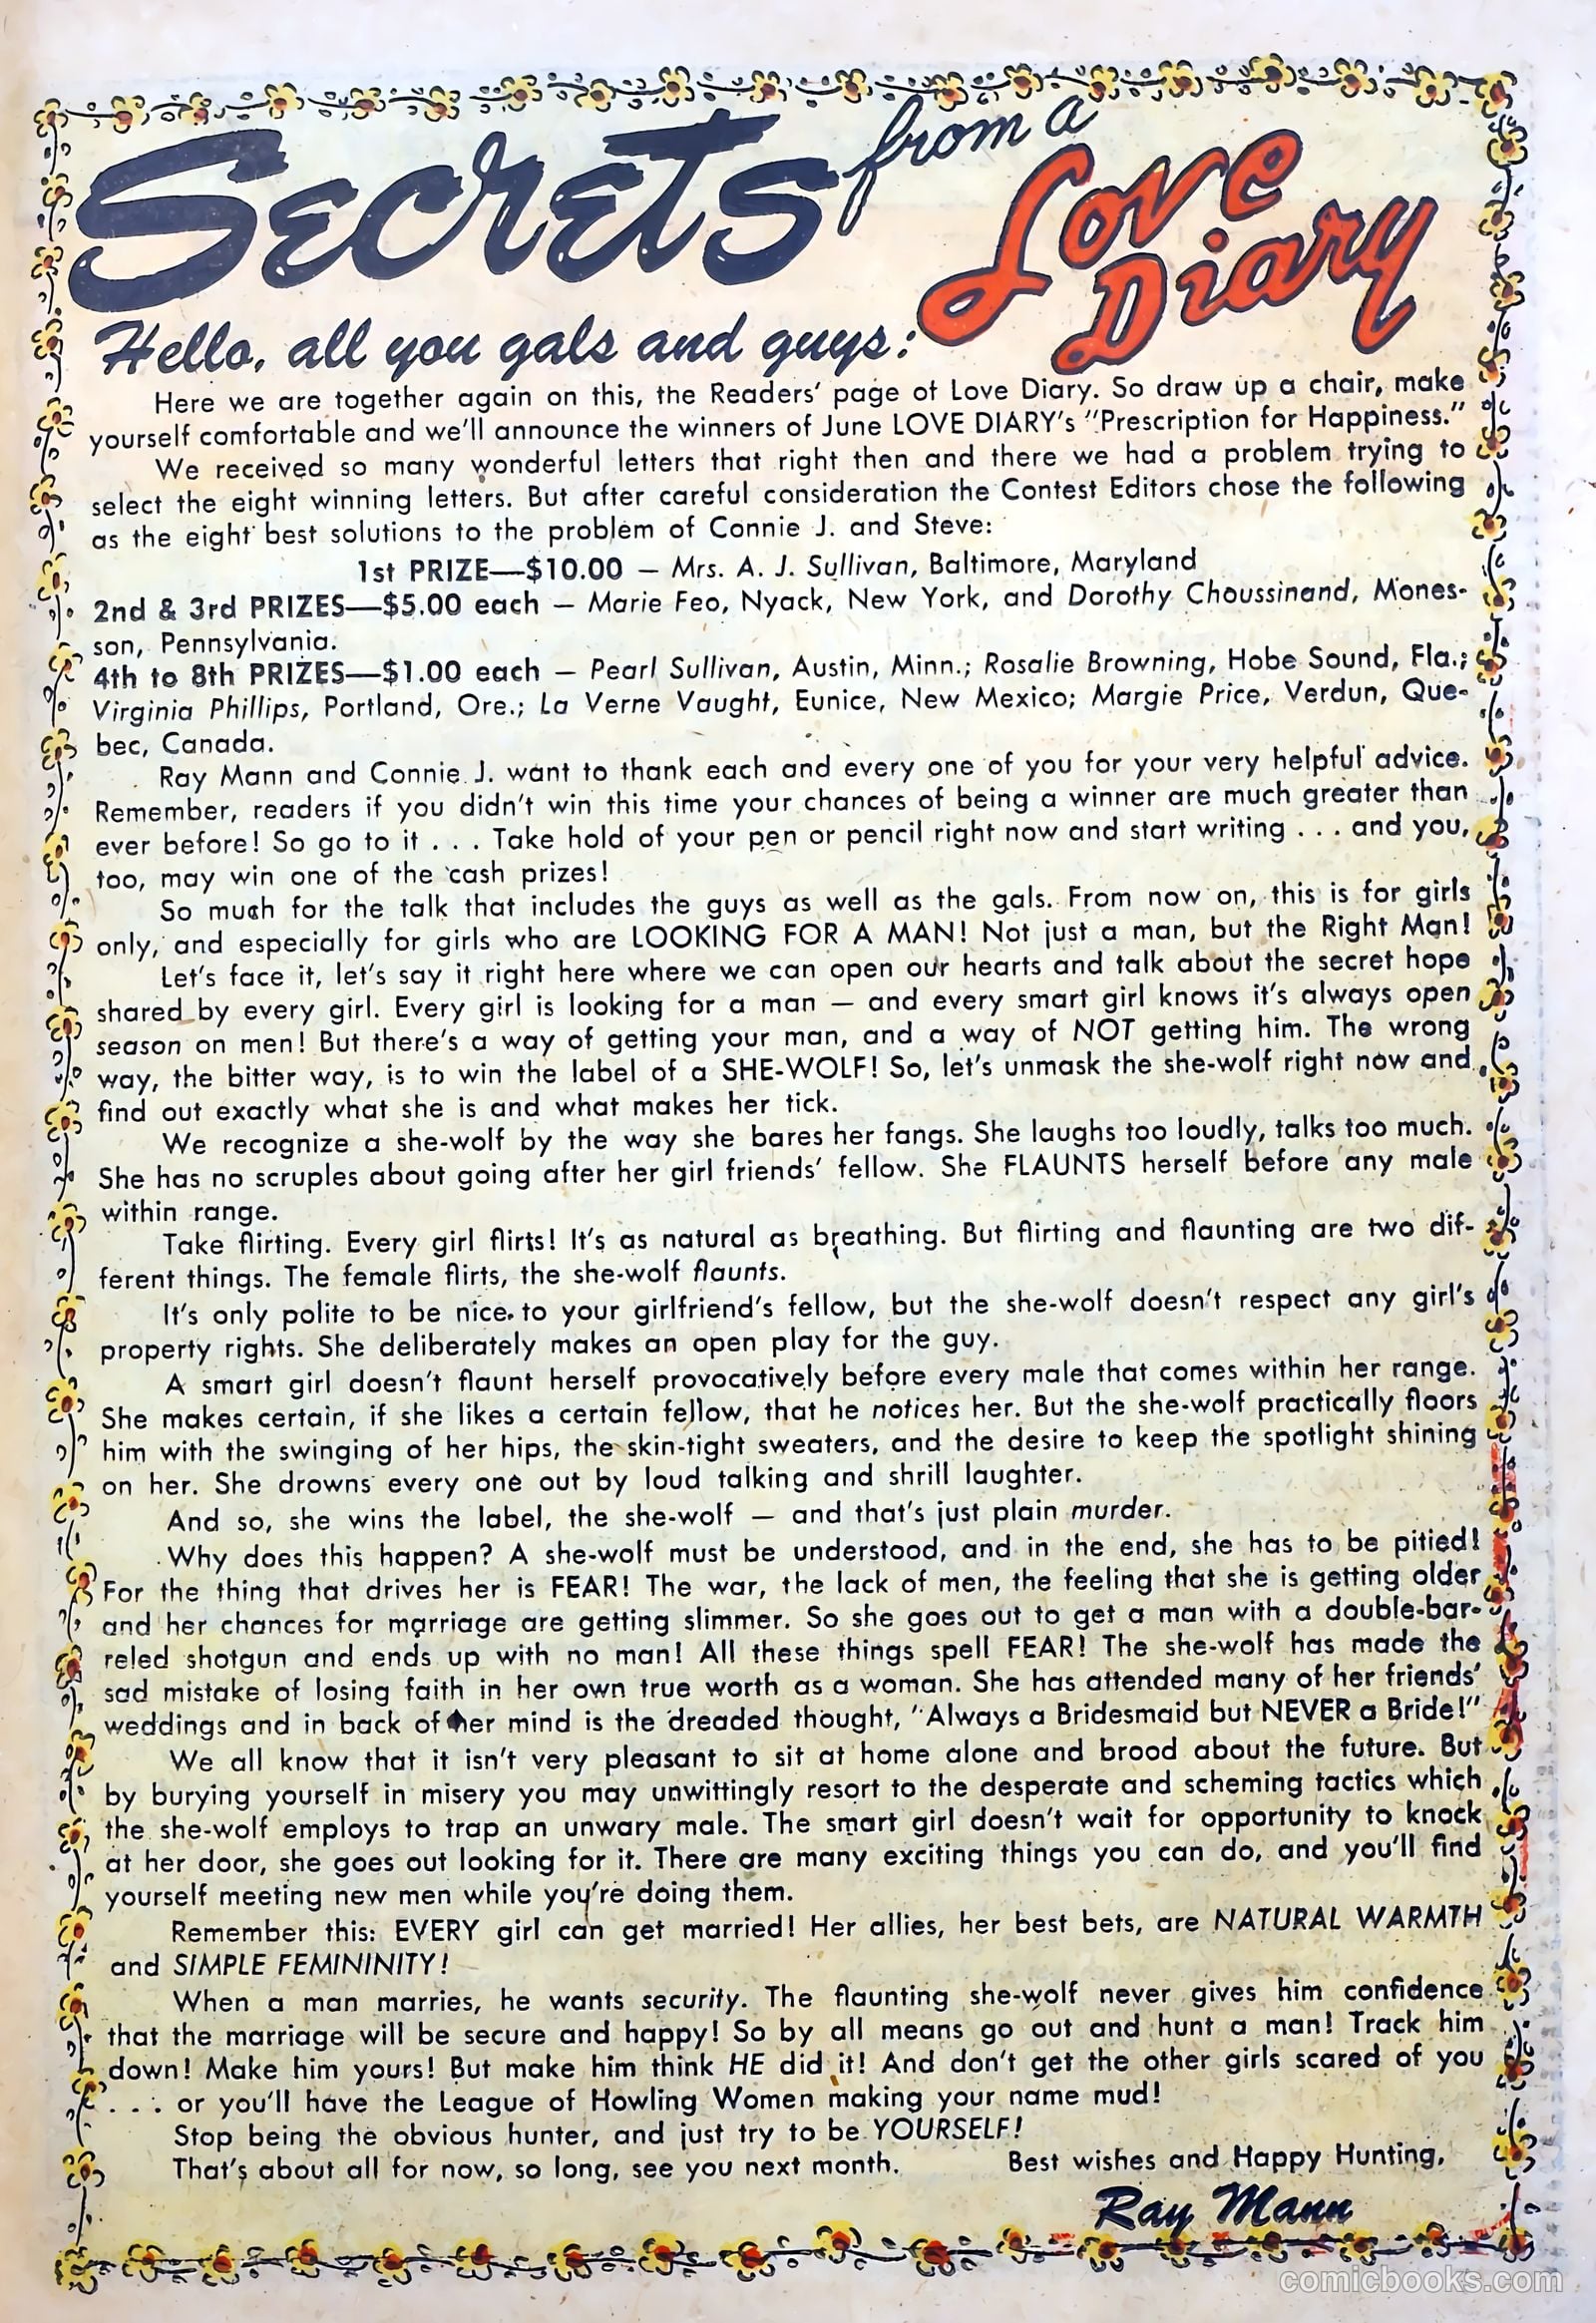 Secrets from a Love Diary
Hello, all you gals and guys:
Here we are together again on this, the Readers' page of Love Diary. So draw up a chair, make
yourself comfortable and we'll announce the winners of June LOVE DIARY's "Prescription for Happiness."
We received so many wonderful letters that right then and there we had a problem trying to
select the eight winning letters. But after careful consideration the Contest Editors chose the following
as the eight best solutions to the problem of Connie J. and Steve:
1st PRIZE—$10.00 — Mrs. A. J. Sullivan, Baltimore, Maryland
2nd & 3rd PRIZES—$5.00 each — Marie Feo, Nyack, New York, and Dorothy Choussinand, Mones-
son, Pennsylvania.
4th to 8th PRIZES—$1.00 each — Pearl Sullivan, Austin, Minn.; Rosalie Browning, Hobe Sound, Fla.;
Virginia Phillips, Portland, Ore.; La Verne Vaught, Eunice, New Mexico; Margie Price, Verdun, Que-
bec, Canada.
Ray Mann and Connie J. want to thank each and every one of you for your very helpful advice.
Remember, readers if you didn't win this time your chances of being a winner are much greater than
ever before! So go to it . . . Take hold of your pen or pencil right now and start writing . . . and you,
too, may win one of the cash prizes!
So much for the talk that includes the guys as well as the gals. From now on, this is for girls
only, and especially for girls who are LOOKING FOR A MAN! Not just a man, but the Right Man!
Let's face it, let's say it right here where we can open our hearts and talk about the secret hope
shared by every girl. Every girl is looking for a man — and every smart girl knows it's always open
season on men! But there's a way of getting your man, and a way of NOT getting him. The wrong
way, the bitter way, is to win the label of a SHE-WOLF! So, let's unmask the she-wolf right now and
find out exactly what she is and what makes her tick.
We recognize a she-wolf by the way she bares her fangs. She laughs too loudly, talks too much.
She has no scruples about going after her girl friends' fellow. She FLAUNTS herself before any male
within range.
Take flirting. Every girl flirts! It's as natural as breathing. But flirting and flaunting are two dif-
ferent things. The female flirts, the she-wolf flaunts.
It's only polite to be nice to your girlfriend's fellow, but the she-wolf doesn't respect any girl's
property rights. She deliberately makes an open play for the guy.
A smart girl doesn't flaunt herself provocatively before every male that comes within her range.
She makes certain, if she likes a certain fellow, that he notices her. But the she-wolf practically floors
him with the swinging of her hips, the skin-tight sweaters, and the desire to keep the spotlight shining
on her. She drowns every one out by loud talking and shrill laughter.
And so, she wins the label, the she-wolf — and that's just plain murder.
Why does this happen? A she-wolf must be understood, and in the end, she has to be pitied!
For the thing that drives her is FEAR! The war, the lack of men, the feeling that she is getting older
and her chances for marriage are getting slimmer. So she goes out to get a man with a double-bar-
reled shotgun and ends up with no man! All these things spell FEAR! The she-wolf has made the
sad mistake of losing faith in her own true worth as a woman. She has attended many of her friends'
weddings and in back of her mind is the dreaded thought, "Always a Bridesmaid but NEVER a Bride!"
We all know that it isn't very pleasant to sit at home alone and brood about the future. But
by burying yourself in misery you may unwittingly resort to the desperate and scheming tactics which
the she-wolf employs to trap an unwary male. The smart girl doesn't wait for opportunity to knock
at her door, she goes out looking for it. There are many exciting things you can do, and you'll find
yourself meeting new men while you're doing them.
Remember this: EVERY girl can get married! Her allies, her best bets, are NATURAL WARMTH
and SIMPLE FEMININITY!
When a man marries, he wants security. The flaunting she-wolf never gives him confidence
that the marriage will be secure and happy! So by all means go out and hunt a man! Track him
down! Make him yours! But make him think HE did it! And don't get the other girls scared of you
. . . or you'll have the League of Howling Women making your name mud!
Stop being the obvious hunter, and just try to be YOURSELF!
That's about all for now, so long, see you next month. Best wishes and Happy Hunting,
Ray Mann
comicbooks.com